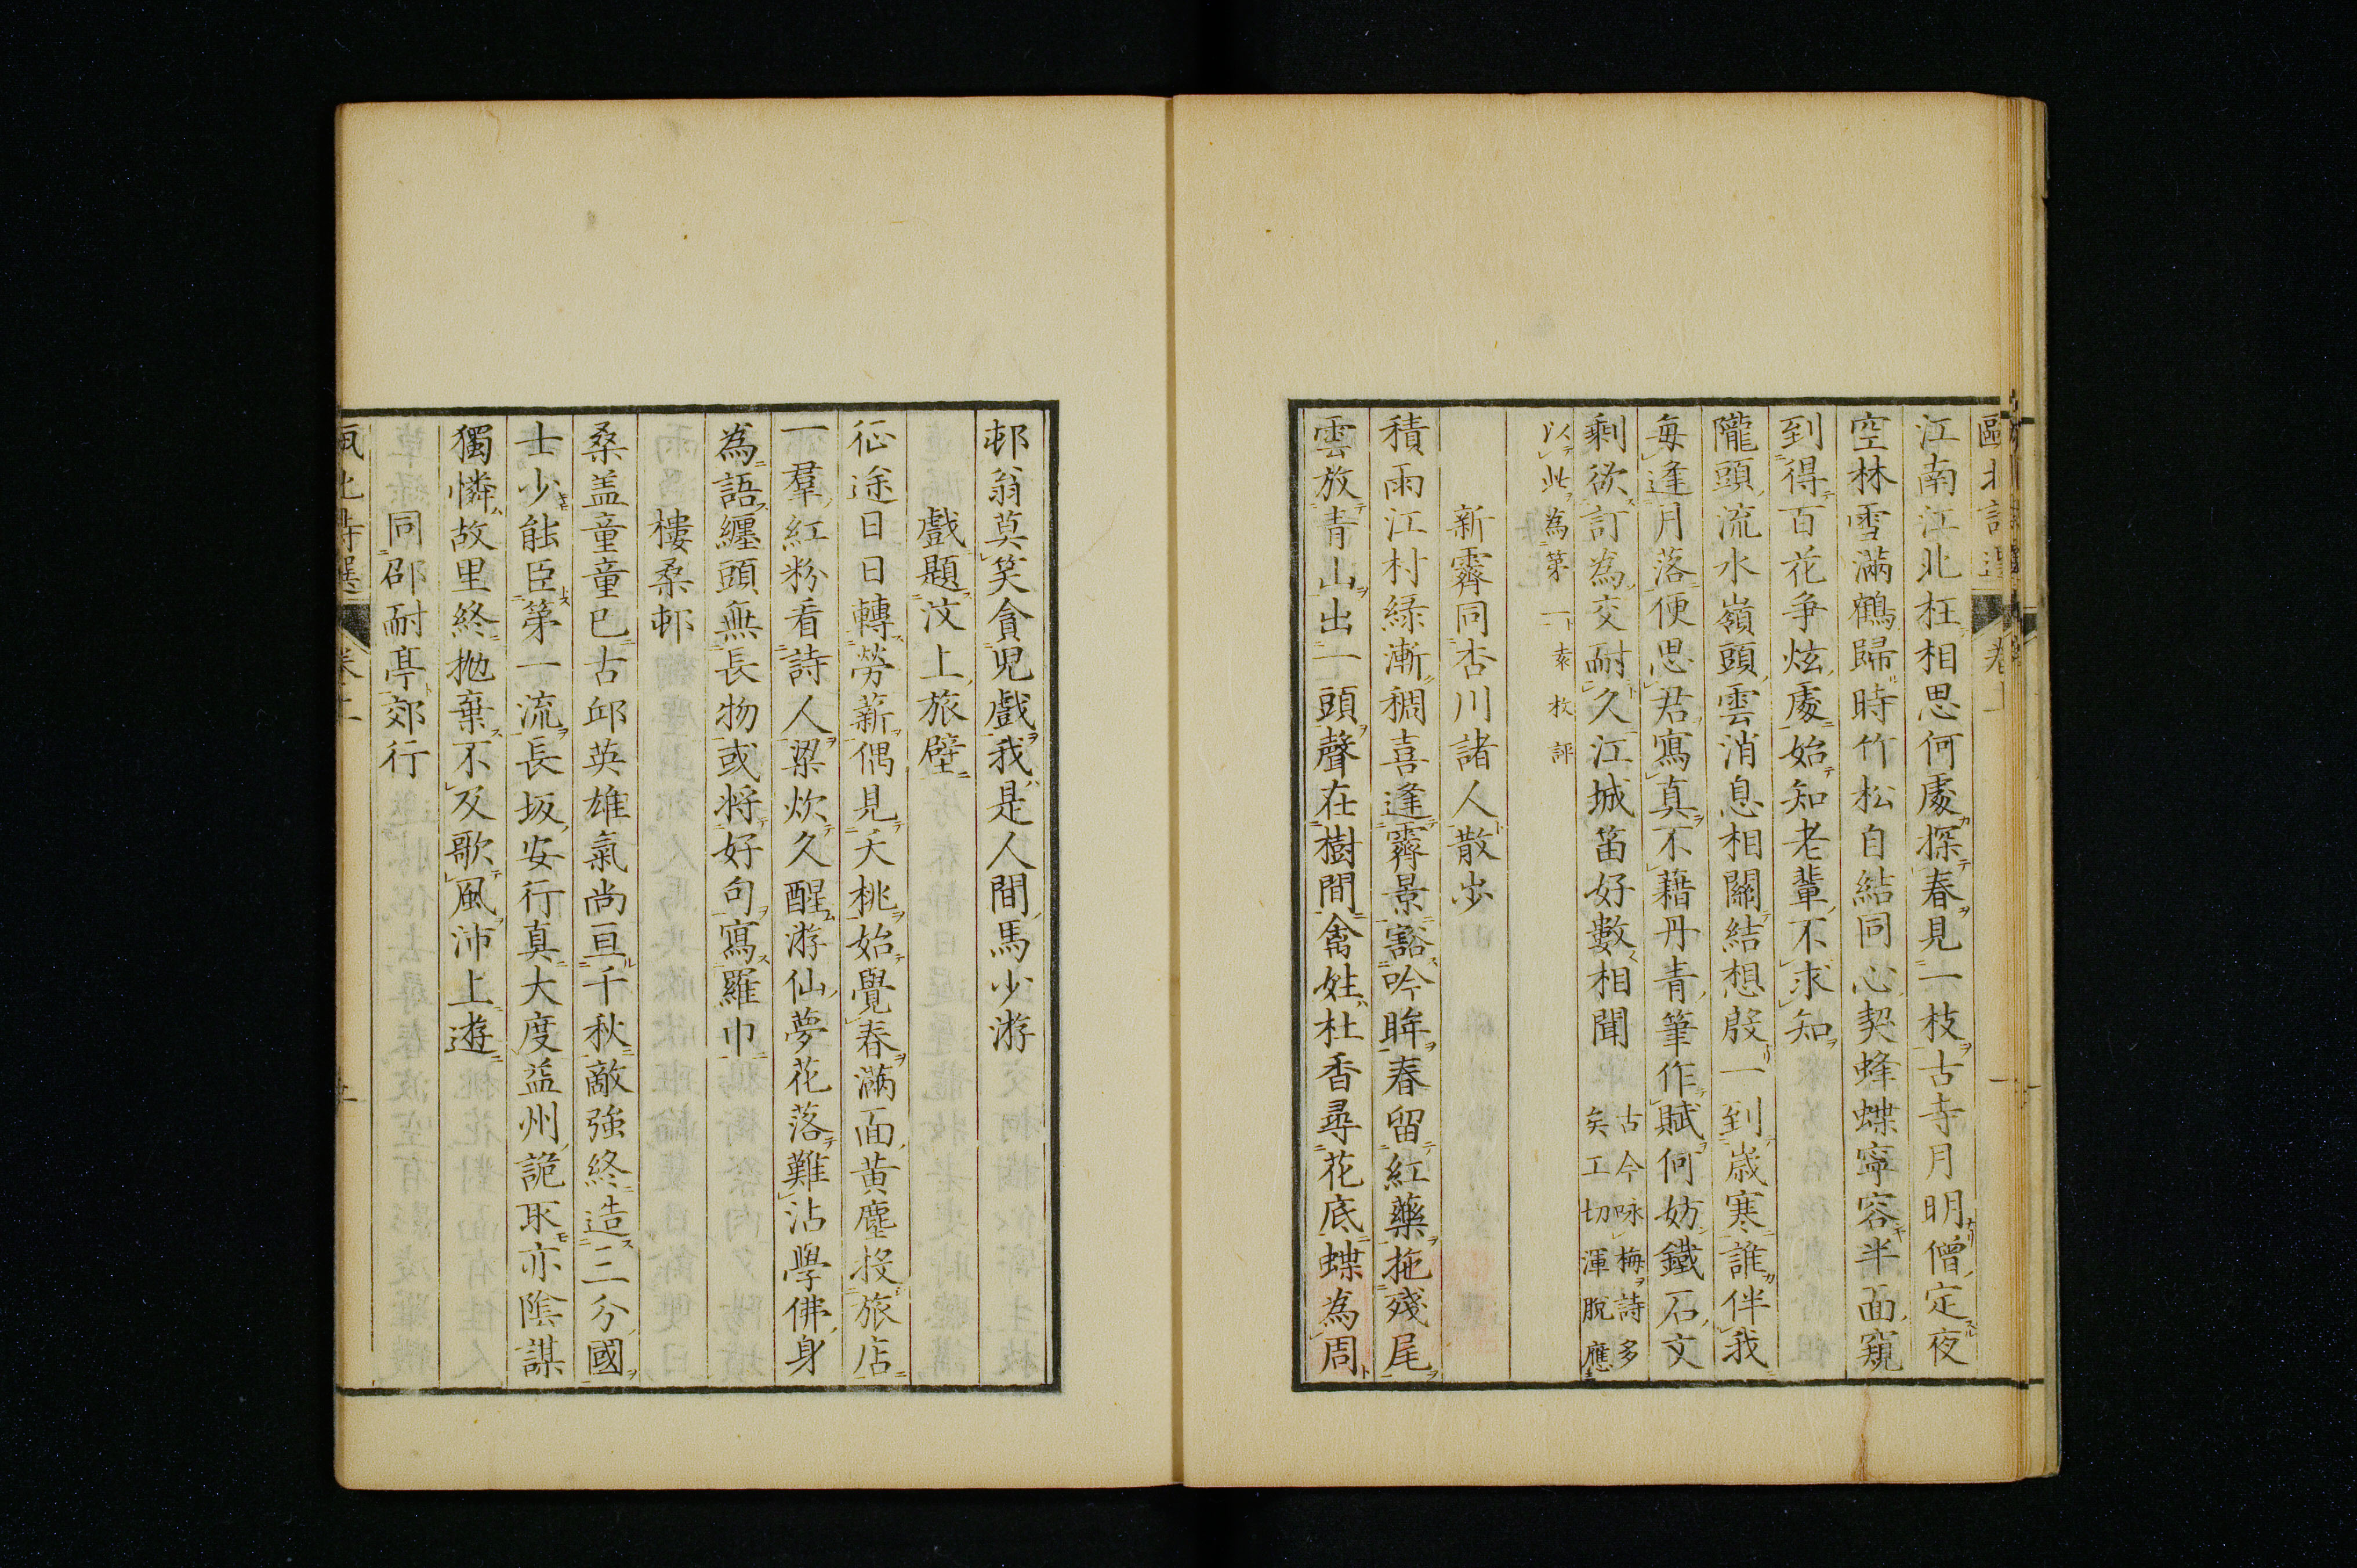 甌北詩選 卷上
江南江北枉相思何處探春見一枝古寺月明僧定夜
空林雪滿鶴歸時竹松自結同心契蜂蝶寧容半面窺
到得百花爭炫處始知老輩不求知
隴頭流水嶺頭雲消息相關結想殷一到歲寒誰伴我
每逢月落便思君寫真不藉丹青筆作賦何妨鐵石文
剩欲訂為交耐久江城笛好數相聞
古今咏梅詩多
矣工切渾脫應
以此為第一袁枚評
新霽同杏川諸人散步
積雨江村緑漸稠喜逢霽景豁吟眸春留紅藥拖殘尾
雲放青山出一頭聲在樹間禽姓杜香尋花底蝶為周
邨翁莫笑貪兒戲我是人間馬少游
戲題汶上旅壁
征途日日轉勞薪偶見夭桃始覺春滿面黃塵投旅店
一羣紅粉看詩人粱炊久醒游仙夢花落難沾學佛身
為語纏頭無長物或将好句寫羅巾
樓桑邨
桑盖童童已古邱英雄氣尚亘千秋敵強終造三分國
士少能臣第一流長坂安行真大度益州詭取亦陰謀
獨憐故里終抛棄不及歌風沛上遊
同邵耐亭郊行
甌北詩選